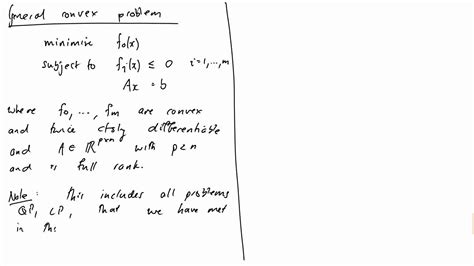 General convex problem
minimize f₀(x)
subject to fᵢ(x) ≤ 0 i=1,...,m
Ax = b
where f₀, ..., fₘ are convex
and twice ctsly differentiable
and A ∈ ℝᵖˣⁿ with p<n
and is full rank.
Note: this includes all problems
QP, LP, that we have met
in this